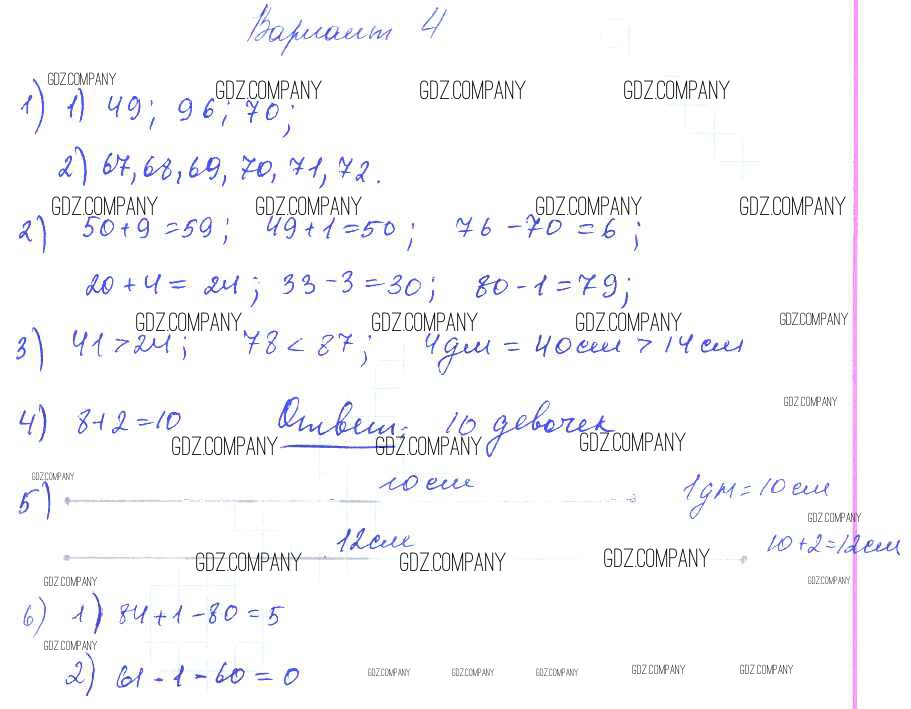 Вариант 4
GDZ.COMPANY GDZ.COMPANY GDZ.COMPANY GDZ.COMPANY
1) 1) 49; 96; 70;
2) 67, 68, 69, 70, 71, 72.
GDZ.COMPANY GDZ.COMPANY GDZ.COMPANY GDZ.COMPANY
2) 50+9=59; 49+1=50; 76-70=6;
20+4=24; 33-3=30; 80-1=79;
GDZ.COMPANY GDZ.COMPANY GDZ.COMPANY GDZ.COMPANY
3) 41>24; 78<87; 4дм=40см>14см
GDZ.COMPANY
4) 8+2=10 Ответ: 10 девочек
GDZ.COMPANY GDZ.COMPANY GDZ.COMPANY
GDZ.COMPANY
5) 10см 1дм=10см
GDZ.COMPANY
12см 10+2=12см
GDZ.COMPANY GDZ.COMPANY GDZ.COMPANY
GDZ.COMPANY GDZ.COMPANY
6) 1) 84+1-80=5
GDZ.COMPANY
2) 61-1-60=0
GDZ.COMPANY GDZ.COMPANY GDZ.COMPANY GDZ.COMPANY GDZ.COMPANY